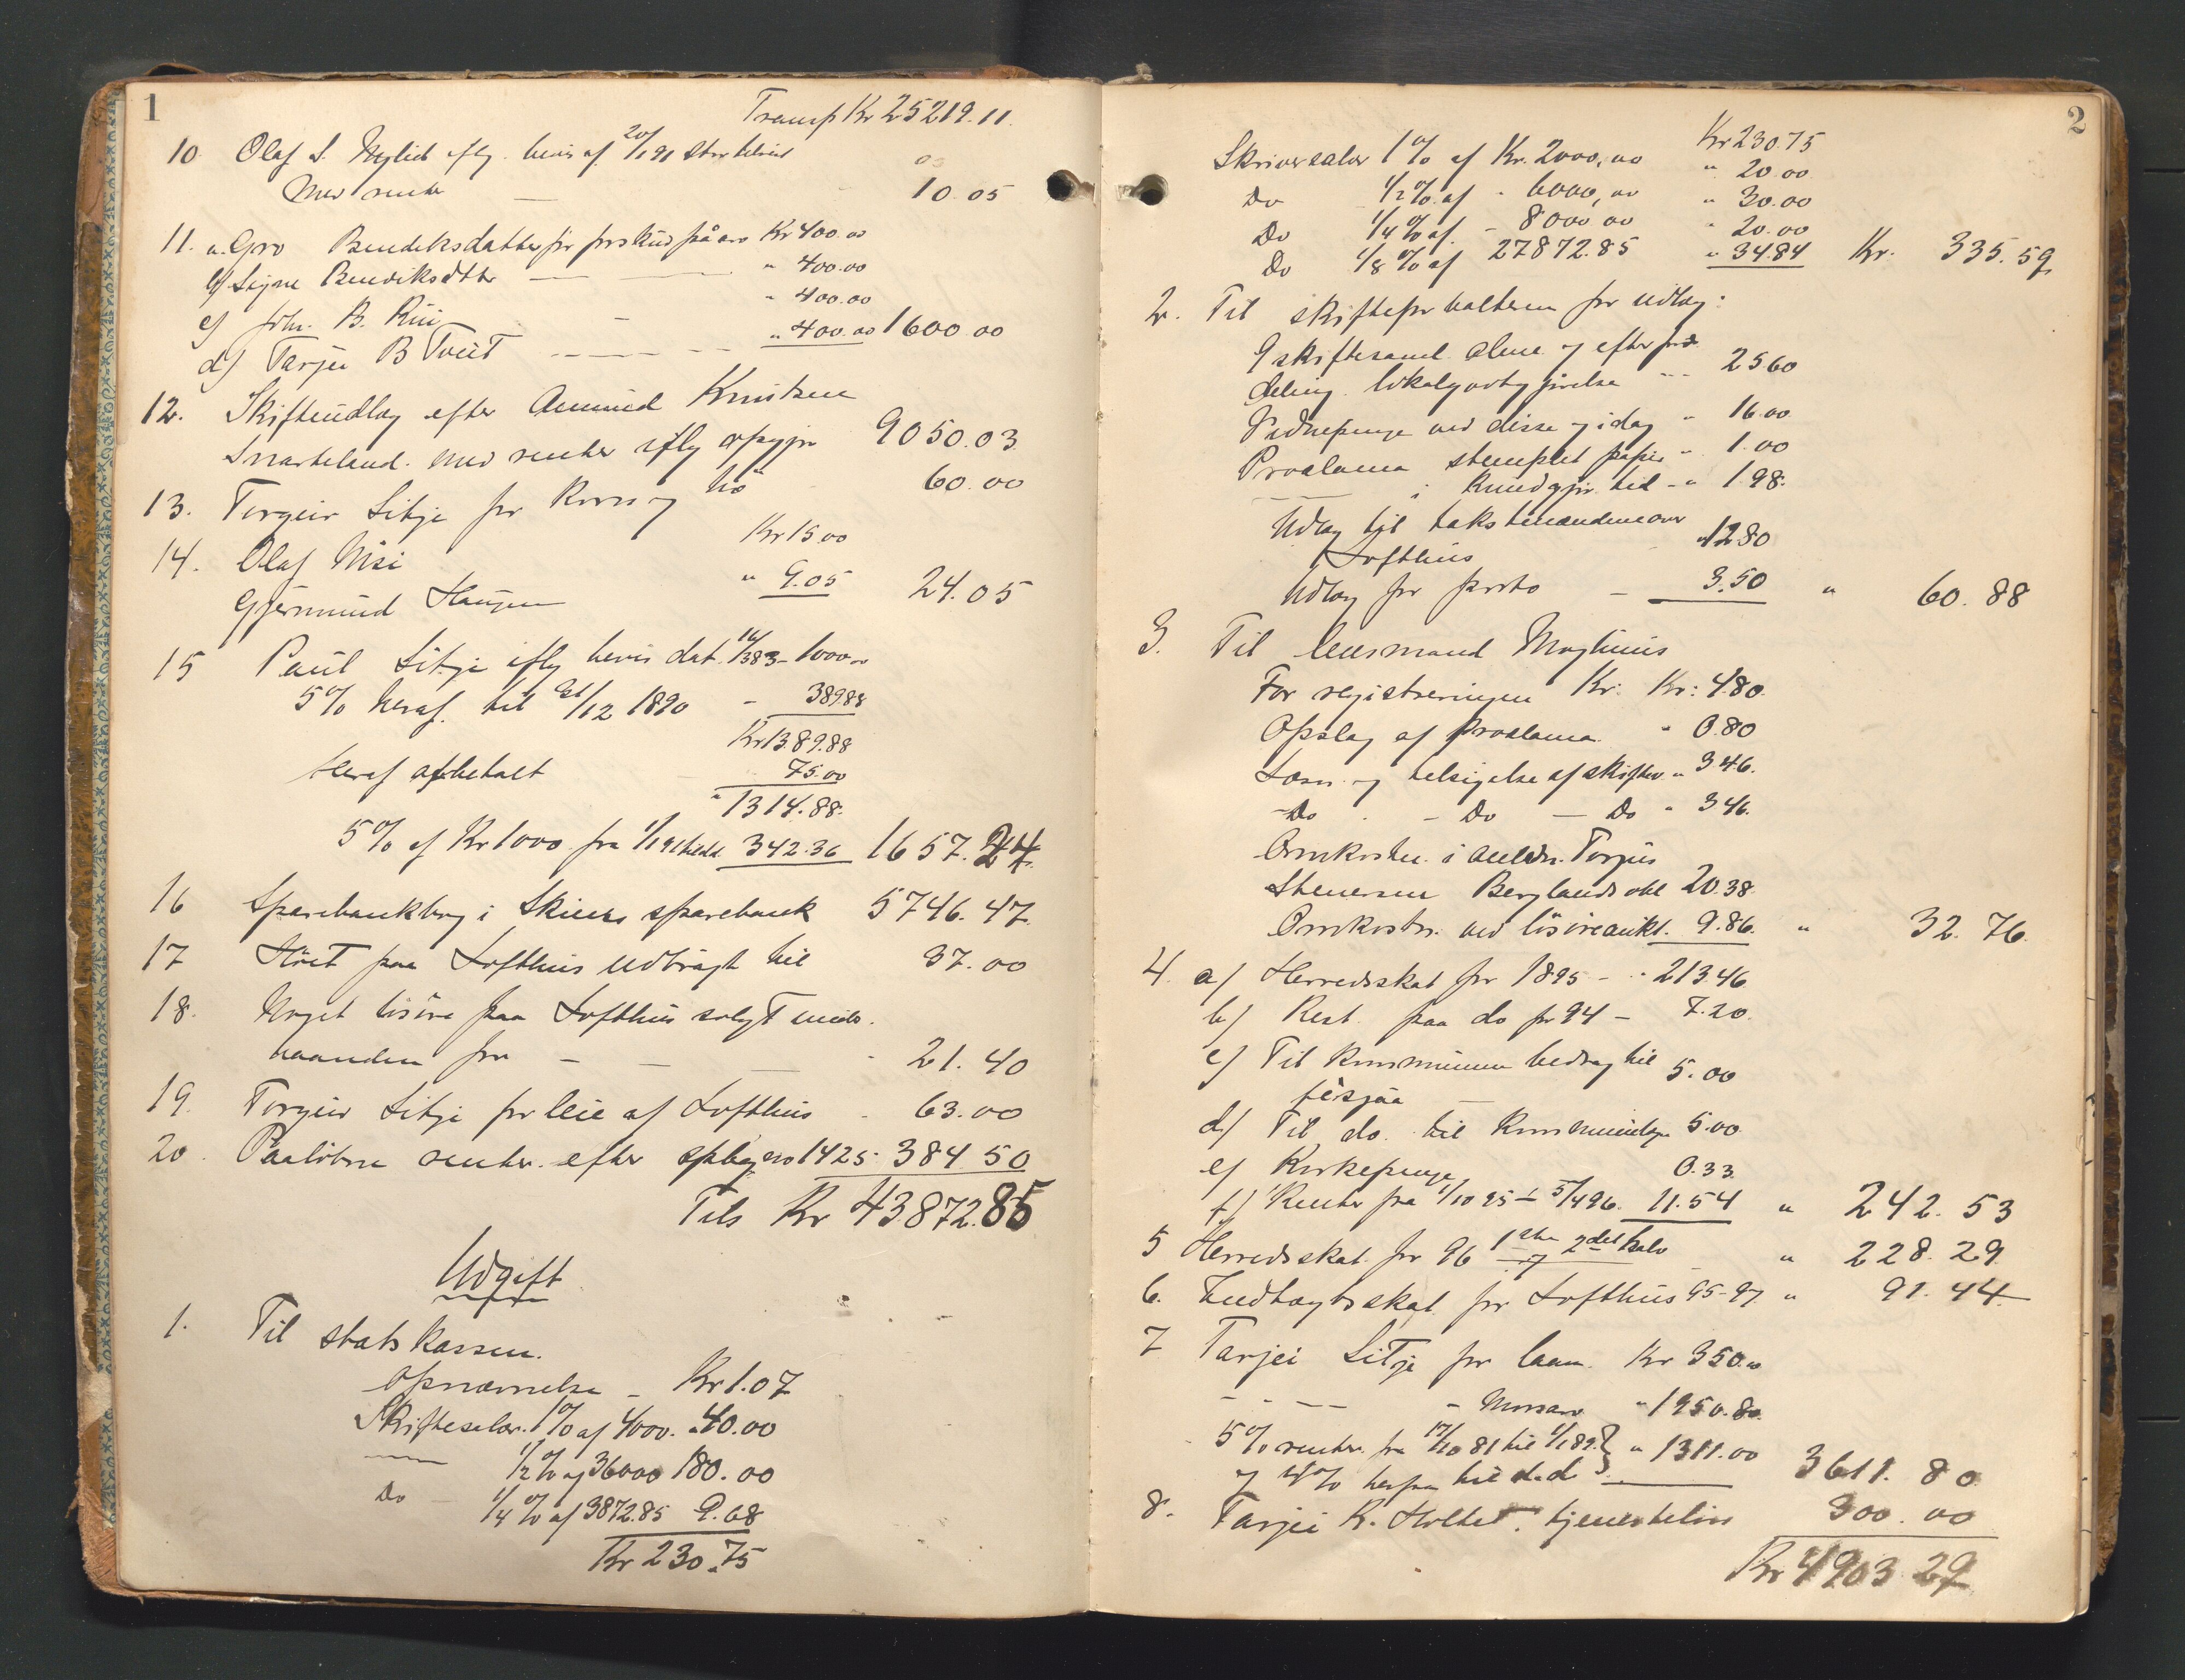 1
Transp Kr 25219.11.
10 Olaf S. iflg. bevis af 20/1 91
Med renter — 10.05
11. a. Gro Bendiksdatter for forskud på arv Kr 400.00
b/ Signe Bendiksdtr — — " 400.00
c/ Joh. B. — " 400.00
d/ Tarjei B Tveit — — — " 400.00 1600 00
12. Skifteudlæg efter Aamund Knutsen
Snarteland. med renter iflg opgjør 9050.03
13. Torgeir Litji for korn og hö 60.00
14. Olaf Kr 15.00
Gjermund Haugen " 9.05 24.05
15 Paul Litji iflg bevis dat. 14/3 83 - 1000.00
5% heraf til 31/12 1890 - 389.88
Kr 1389.88
Heraf afbetalt 75.00
" 1314.88.
5% af Kr 1000 fra 1/1 91 til dd. 342.36 1657.24
16 Sparebankbog i Skiens sparebank 5746.47
17 Höet paa Lofthus udbragt til 37.00
18. Noget lösöre paa Lofthus solgt under-
haanden for — — — 21.40
19. Torgeir Litji for leie af Lofthus - 63.00
20. Paalöbne renter efter spbg no 1425 - 384 50
Tils Kr 43872.85
Udgift
1. Til statskassen.
Opnævnelse - Kr 1.07
Skiftesalær. 1% af 4000. " 40.00
— 1/2 % af 36000 180.00
Do — 1/4 % af 3872.85 9.68
Kr 230.75
2
Kr 230.75
Skriversalær 1% af Kr. 2000,00 " 20.00
Do 1/2 % af - 6000,00 " 30.00
Do 1/4 % af - 8000 00 " 20.00
Do 1/8 % af 27872.85 " 34.84 Kr. 335.59
2. Til skifteforvalteren for udlæg:
9 skiftesaml. alene og efter for-
deling. lokalgodtgjörelse " 25.60
Vidnepenge ved disse og idag " 16.00
Proclama stemplet papir " 1.00
— i Kundgjør. tid. - " 1.98.
Udlæg til takstmændene over
Lofthus - " 12.80
Udlæg for porto — 3.50 " 60.88
3. Til lensmand Moghuus
For registreringen Kr: Kr: 4.80.
Opslag af proclama " 0.80
Læsn. og tilsigelse af skiftev. " 3.46.
- Do . - Do — Do " 3.46.
Omkostn. i anledn. Torjus
Stenersen Berglands obl 20.38.
Omkostn. ved lösöreaukt. 9.86. " 32.76.
4. a/ Herredsskat for 1895 - " 213.46
b/ Rest paa do for 94 - 7.20.
c/ Til kommunen bidrag til 5.00
fésjaa —
d/ Til do. til kommunelge 5.00
e/ Kirkepenge 0.33
f/ Renter fra 1/10 95 - 5/4 96. 11.54 " 242.53
5 Herredsskat for 96 1ste og 2det halv " 228.29
6. Indtægtsskat for Lofthus 95-97 " 91.44
7 Tarjei Litje for laan Kr 350.00
- - — - " 1950.80.
5% renter fra 17/10 81 til 1/1 89. } " 1311.00
og 4% herfra til d.d } — 3611.80
8. Tarjei K. Holtet. tjenestelön 300.00
Kr 4903 29